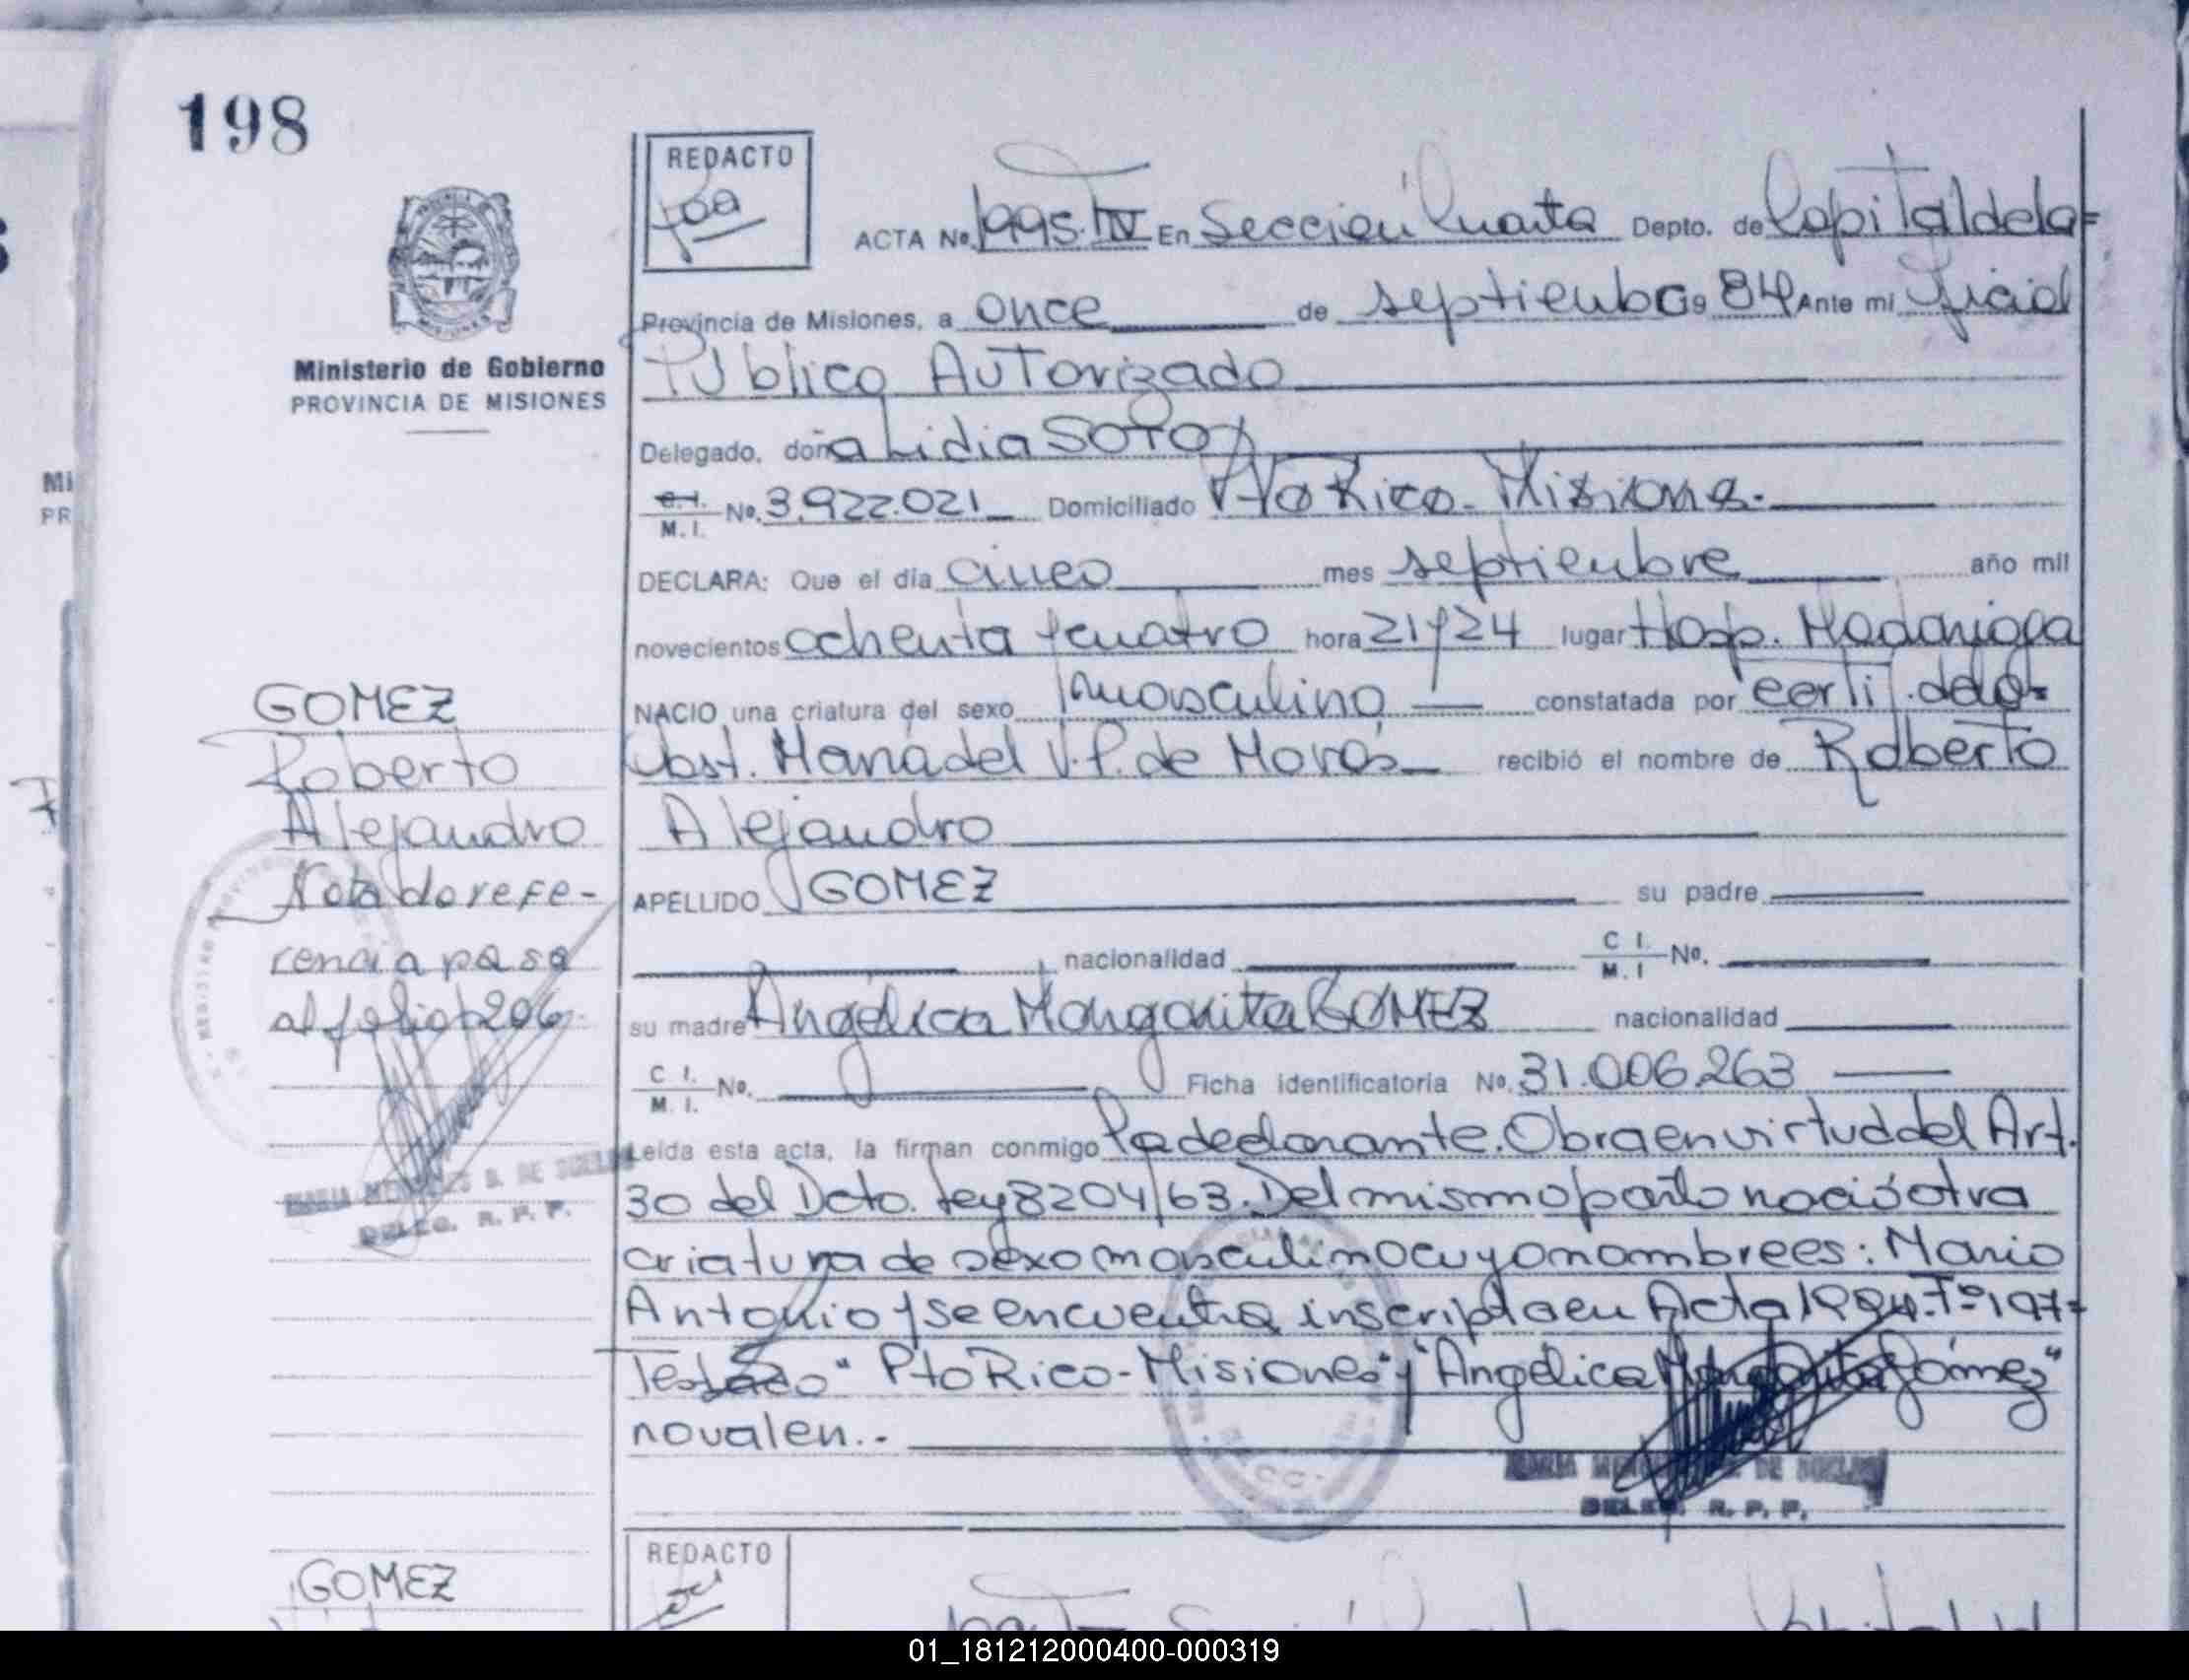 198
REDACTO
ACTA No. 1995.TºIV En Sección Cuarta Depto. de Capital de la=
Provincia de Misiones, a once de septiembre 9 84 Ante mi Oficial
Público Autorizado
Ministerio de Gobierno
PROVINCIA DE MISIONES
Delegado, doña Lidia SOTO
C.I. M.I. No. 3.922.021 Domiciliado Pto Rico - Misiones.
DECLARA: Que el día cinco mes septiembre año mil
novecientos ochenta y cuatro hora 21 y 24 lugar Hosp. Madariaga
NACIO una criatura del sexo masculino constatada por certif. de la=
Obst. María del V.P. de recibió el nombre de Roberto
Alejandro
GOMEZ
Roberto
Alejandro
Nota de refe-
rencia pasa
al folio 206
APELLIDO GOMEZ su padre
nacionalidad C I. M. I No.
su madre Angélica Margarita GOMEZ nacionalidad
C I. M. I. No. Ficha identificatoria No. 31.006.263
Leída esta acta, la firman conmigo la declarante. Obra en virtud del Art.
30 del Dcto. Ley 8204/63. Del mismo parto nació otra
criatura de sexo masculino cuyo nombre es: Mario
Antonio y se encuentra inscripta en Acta 1994. Tº 197=
Testado "Pto Rico - Misiones" y "Angélica Margarita Gómez"
no valen.-
DELEG. R. P. P.
DELEG. R. P. P.
GOMEZ
REDACTO
01_181212000400-000319